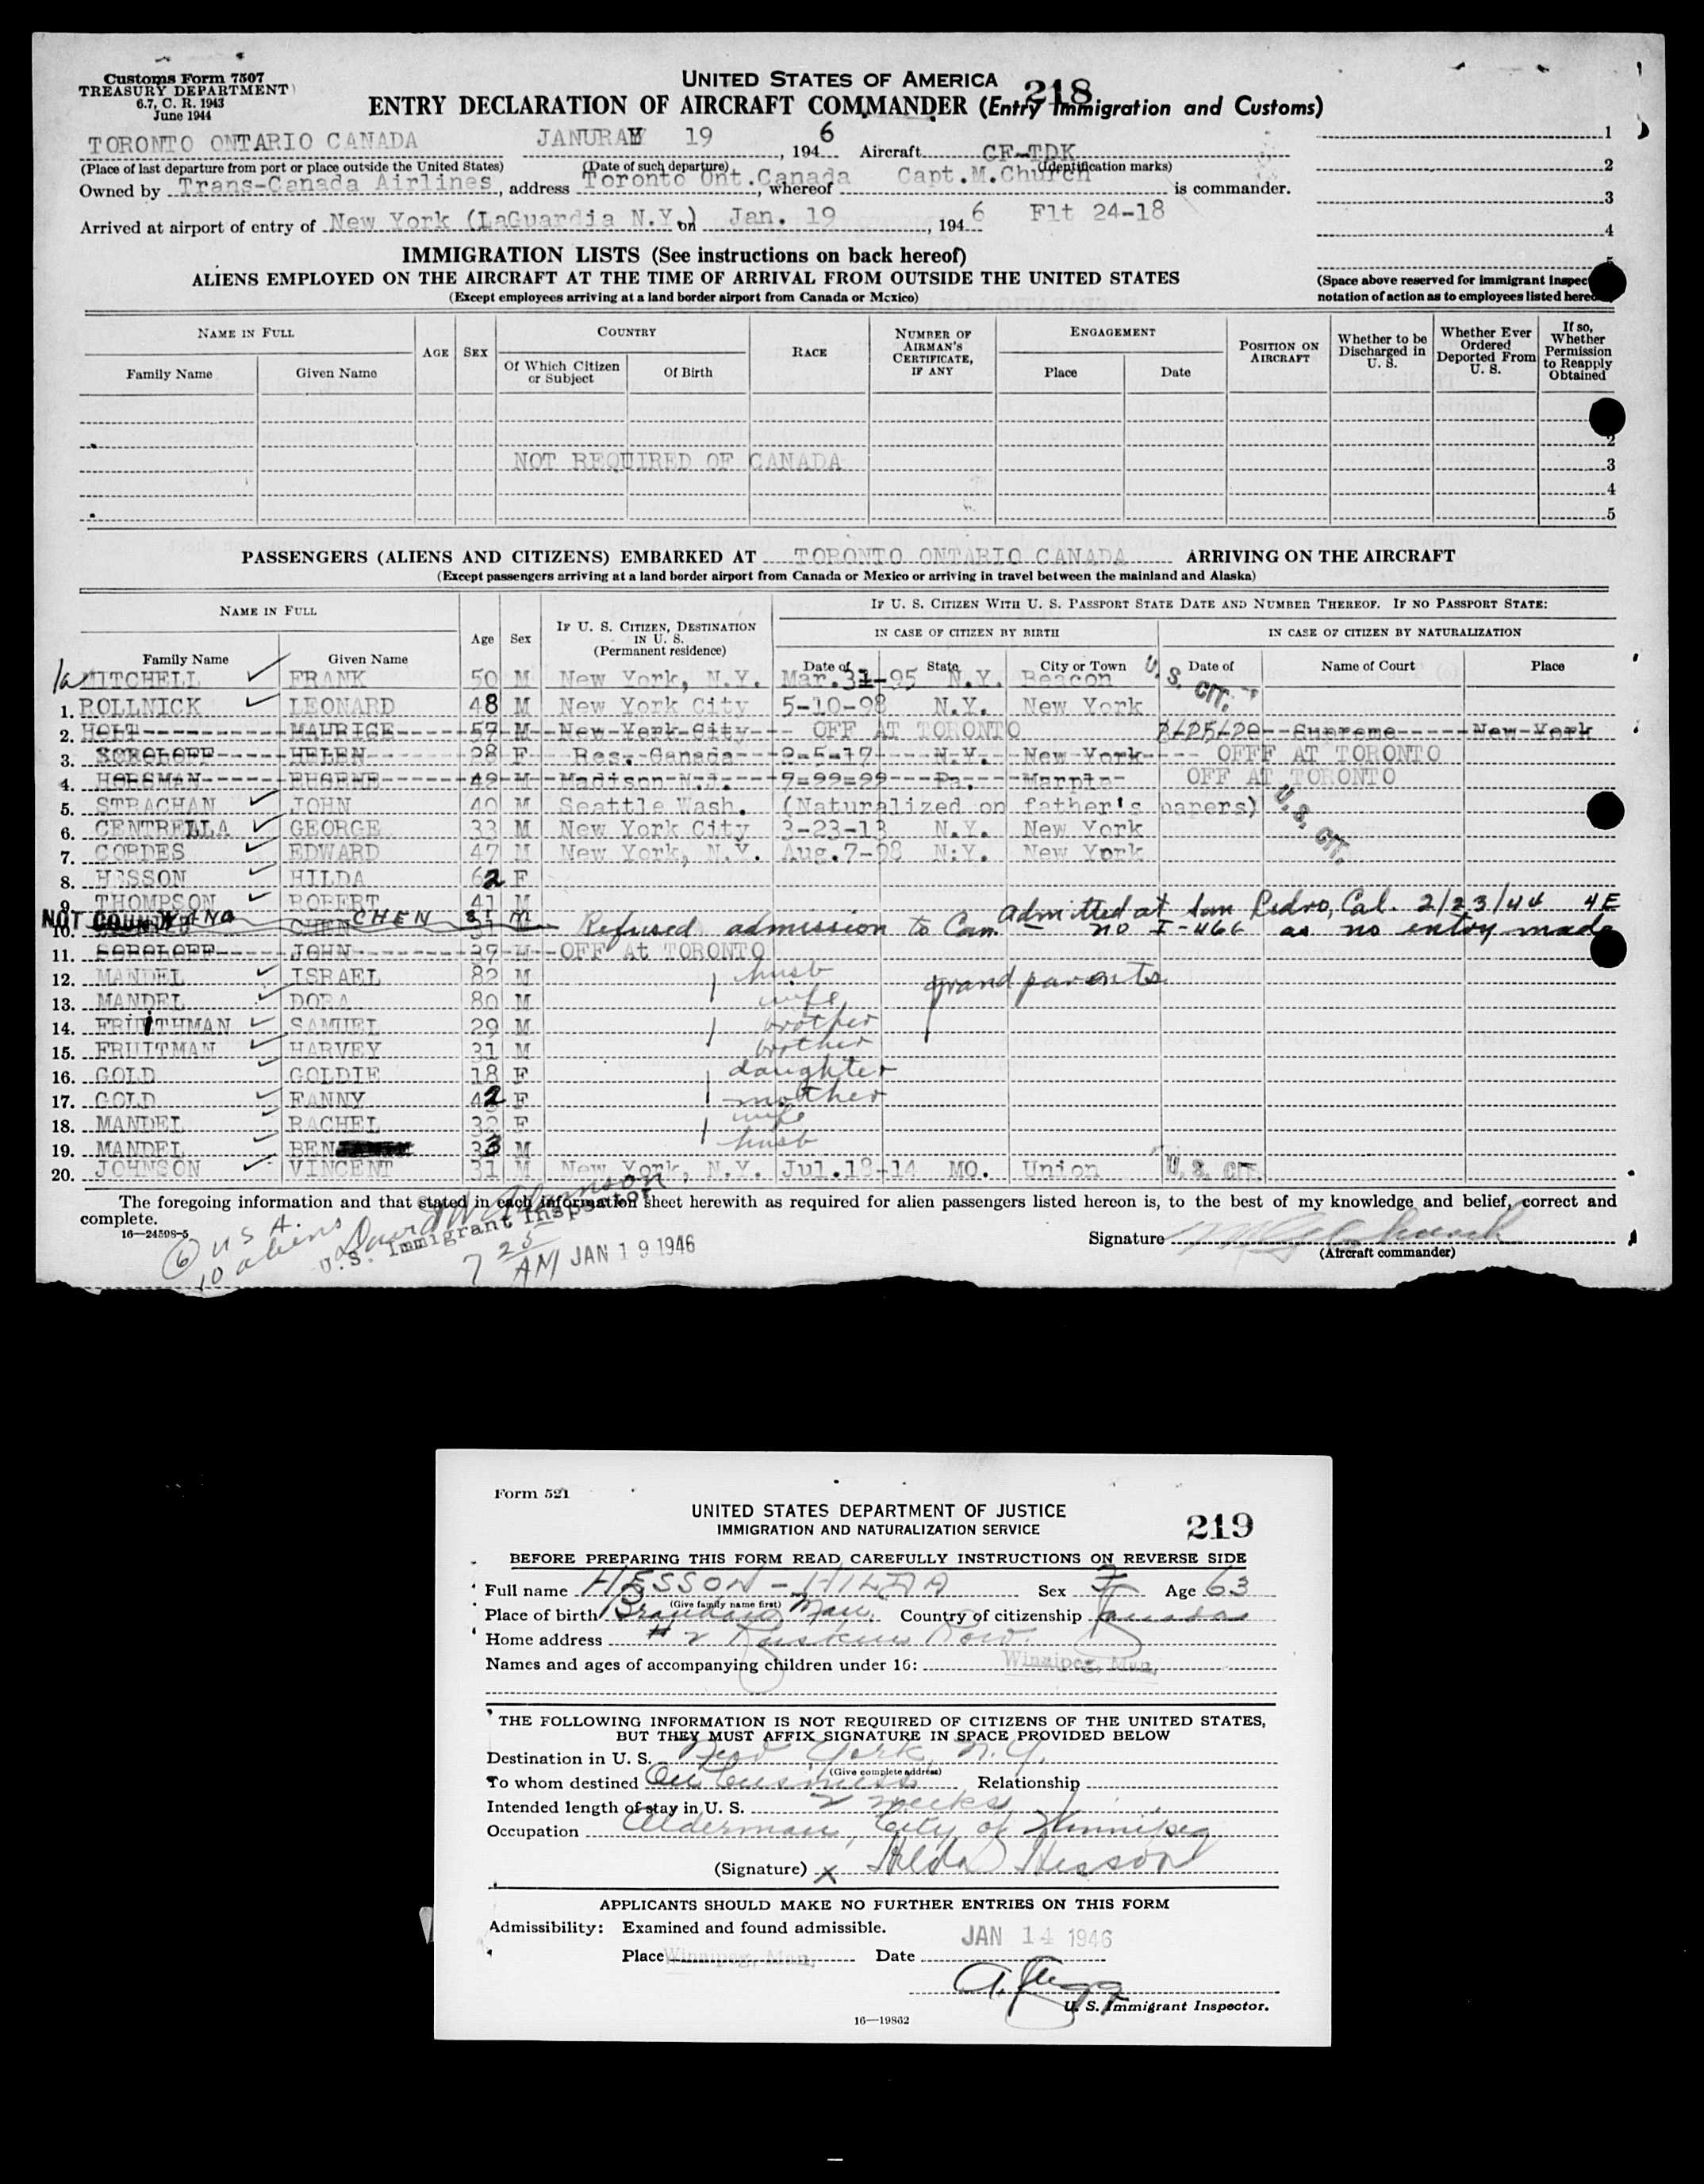 Customs Form 7507
TREASURY DEPARTMENT
6.7, C. R. 1943
June 1944
UNITED STATES OF AMERICA
218
ENTRY DECLARATION OF AIRCRAFT COMMANDER (Entry Immigration and Customs)
TORONTO ONTARIO CANADA JANURAY 19, 1946 Aircraft CF-TDK
(Place of last departure from port or place outside the United States) (Date of such departure) (Identification marks)
Owned by Trans-Canada Airlines, address Toronto Ont. Canada, whereof Capt. M. Church is commander.
Arrived at airport of entry of New York (LaGuardia N.Y.) on Jan. 19, 1946 Flt 24-18
1
2
3
4
5
IMMIGRATION LISTS (See instructions on back hereof)
ALIENS EMPLOYED ON THE AIRCRAFT AT THE TIME OF ARRIVAL FROM OUTSIDE THE UNITED STATES
(Except employees arriving at a land border airport from Canada or Mexico)
(Space above reserved for immigrant inspec
notation of action as to employees listed hereo
NAME IN FULL AGE SEX COUNTRY RACE NUMBER OF AIRMAN'S CERTIFICATE, IF ANY ENGAGEMENT POSITION ON AIRCRAFT Whether to be Discharged in U. S. Whether Ever Ordered Deported From U. S. If so, Whether Permission to Reapply Obtained
Family Name Given Name Of Which Citizen or Subject Of Birth Place Date
2
NOT REQUIRED OF CANADA 3
4
5
PASSENGERS (ALIENS AND CITIZENS) EMBARKED AT TORONTO ONTARIO CANADA ARRIVING ON THE AIRCRAFT
(Except passengers arriving at a land border airport from Canada or Mexico or arriving in travel between the mainland and Alaska)
NAME IN FULL Age Sex IF U. S. CITIZEN, DESTINATION IN U. S. (Permanent residence) IF U. S. CITIZEN WITH U. S. PASSPORT STATE DATE AND NUMBER THEREOF. IF NO PASSPORT STATE:
IN CASE OF CITIZEN BY BIRTH IN CASE OF CITIZEN BY NATURALIZATION
Family Name Given Name Date of State City or Town Date of Name of Court Place
1a MITCHELL FRANK 50 M New York, N.Y. Mar.31-95 N.Y. Beacon U. S. CIT.
1. ROLLNICK LEONARD 48 M New York City 5-10-98 N.Y. New York
2. HOLT MAURICE 57 M New York City OFF AT TORONTO 2/25/20 Supreme New York
3. SOBOLOFF HELEN 28 F Res. Canada 2-5-17 N.Y. New York OFFF AT TORONTO
4. HORSMAN EUGENE 49 M Madison N.J. 7-99-99 Pa. Marple OFF AT TORONTO
5. STRACHAN JOHN 40 M Seattle Wash. (Naturalized on father's papers) U. S. CIT.
6. CENTRELLA GEORGE 33 M New York City 3-23-13 N.Y. New York
7. CORDES EDWARD 47 M New York, N.Y. Aug.7-98 N.Y. New York
8. HESSON HILDA 62 F
9. THOMPSON ROBERT 41 M
NOT COUNTED WANG CHEN 31 M Admitted at San Pedro, Cal. 2/23/44 4E
10. CHEN 31 M Refused admission to Can. no I-466 as no entry made
11. SOBOLOFF JOHN 37 M OFF At TORONTO
12. MANDEL ISRAEL 82 M husb grandparents
13. MANDEL DORA 80 M wife
14. FRUITHMAN SAMUEL 29 M brother
15. FRUITMAN HARVEY 31 M brother
16. GOLD GOLDIE 18 F daughter
17. GOLD FANNY 42 F mother
18. MANDEL RACHEL 32 F wife
19. MANDEL BEN 33 M husb
20. JOHNSON VINCENT 31 M New York, N.Y. Jul.18-14 MO. Union U. S. CIT.
The foregoing information and that stated in each information sheet herewith as required for alien passengers listed hereon is, to the best of my knowledge and belief, correct and
complete.
16—24598-5
6 USA.
10 aliens
U. S. Immigrant Inspector
7 25 AM JAN 19 1946
Signature
(Aircraft commander)
Form 521
UNITED STATES DEPARTMENT OF JUSTICE
IMMIGRATION AND NATURALIZATION SERVICE
219
BEFORE PREPARING THIS FORM READ CAREFULLY INSTRUCTIONS ON REVERSE SIDE
Full name HESSON - HILDA Sex F Age 63
(Give family name first)
Place of birth Brandon Man. Country of citizenship Canada
Home address # 2 Ruskin Row.
Names and ages of accompanying children under 16: Winnipeg, Man.
THE FOLLOWING INFORMATION IS NOT REQUIRED OF CITIZENS OF THE UNITED STATES,
BUT THEY MUST AFFIX SIGNATURE IN SPACE PROVIDED BELOW
Destination in U. S. New York, N.Y.
(Give complete address)
To whom destined On business Relationship
Intended length of stay in U. S. 2 weeks
Occupation Alderman, City of Winnipeg
(Signature) x Hilda Hesson
APPLICANTS SHOULD MAKE NO FURTHER ENTRIES ON THIS FORM
Admissibility: Examined and found admissible.
Place Winnipeg, Man. Date JAN 14 1946
U. S. Immigrant Inspector.
16—19862